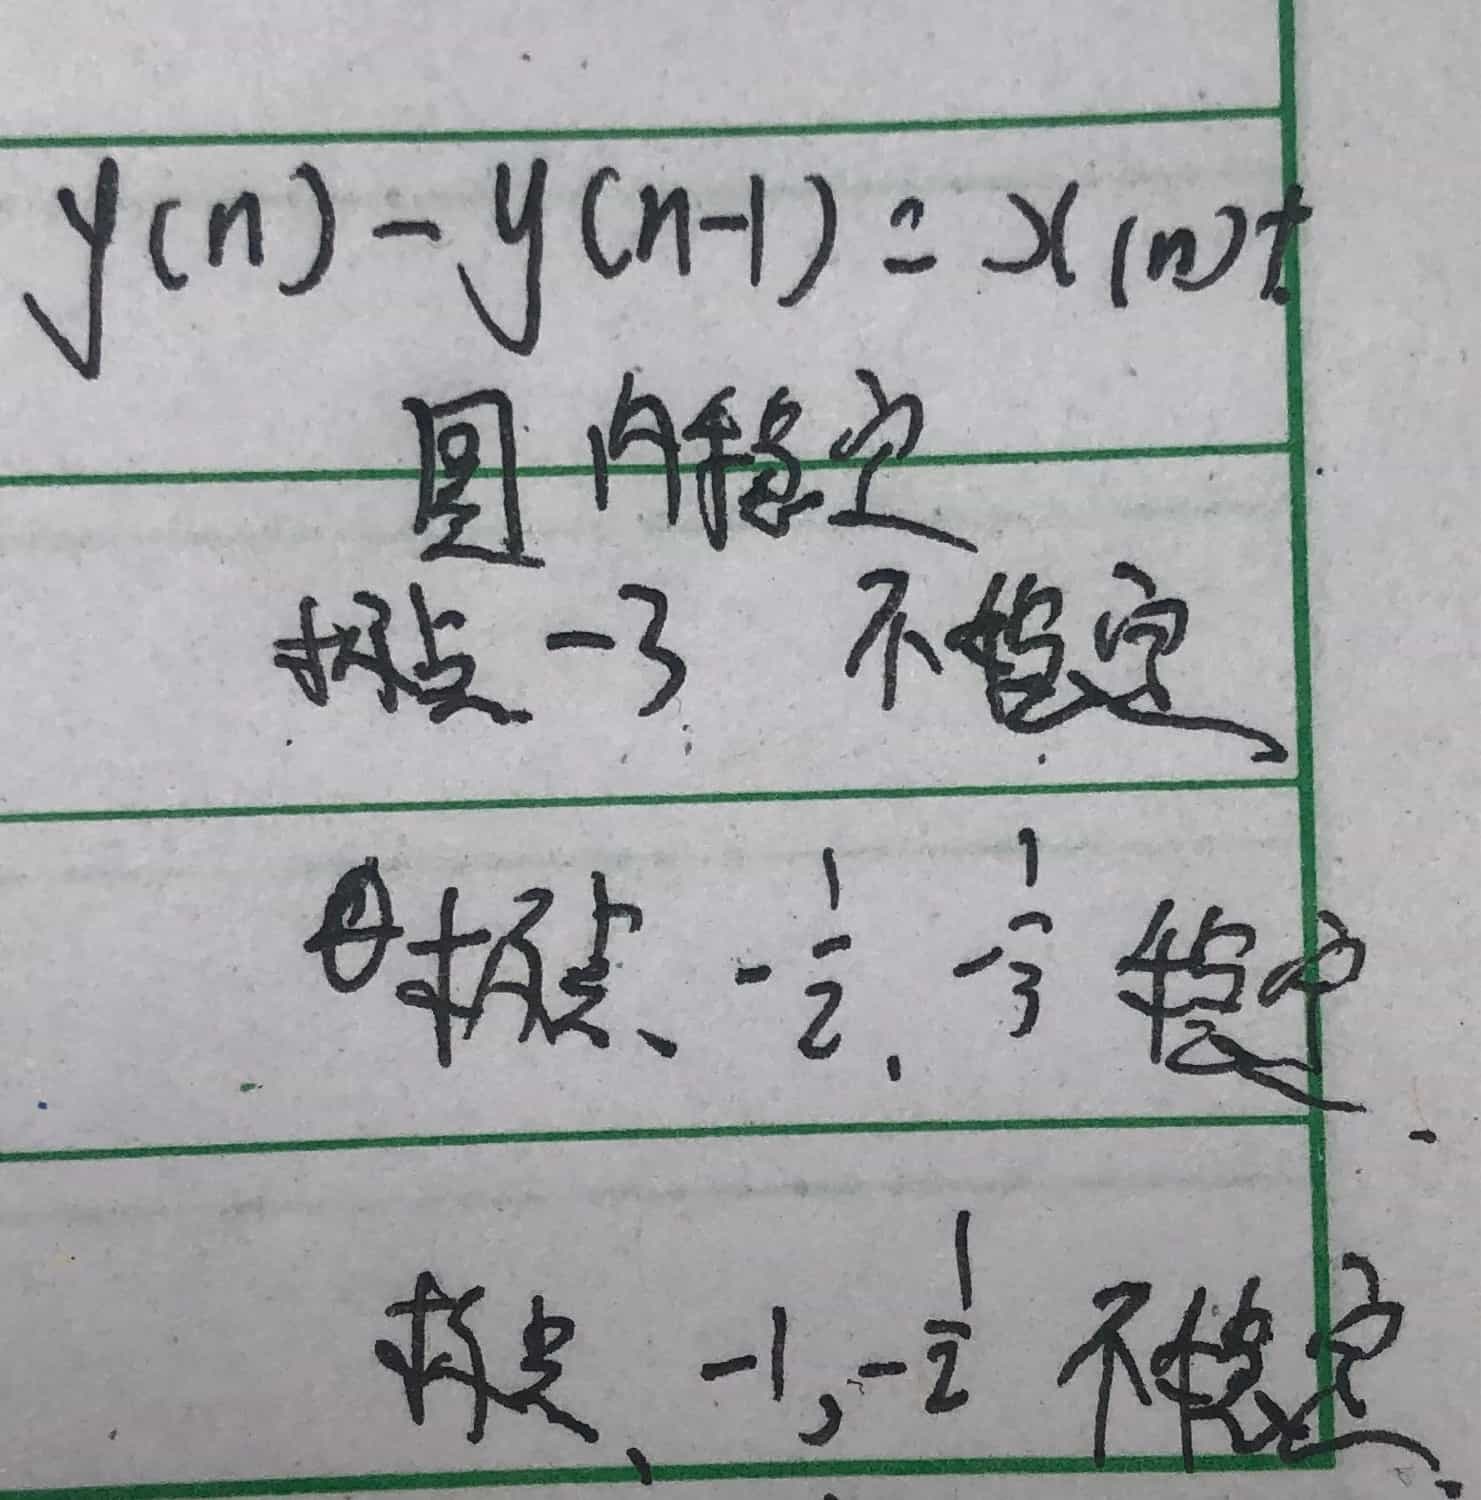 y(n) - y(n-1) = x(n)+
圆内稳定
极点 -3 不稳定
极点、-1/2, -1/3 稳定
极点、-1, -1/2 不稳定